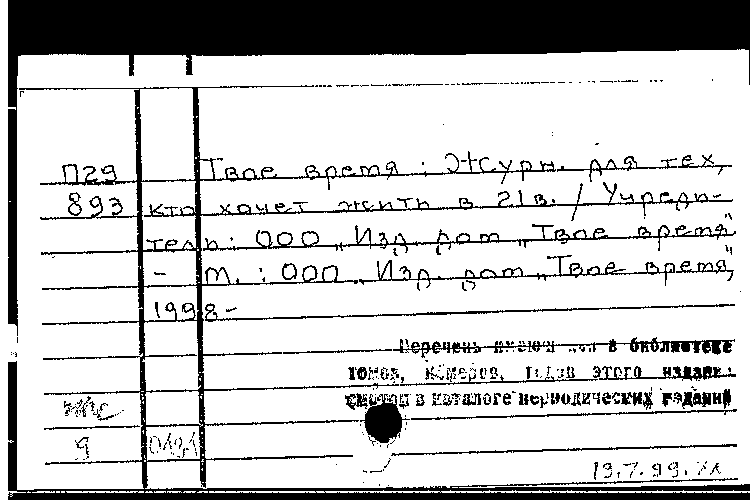 П29 Твое время : Журн. для тех,
893 кто хочет жить в 21 в. / Учреди-
тель : ООО „Изд. дом „Твое время"
- М. : ООО „Изд. дом „Твое время",
1998-
Перечень в библиотеке
томов, номеров, годов этого издания
смотри в каталоге периодических изданий
9
19.7.99.